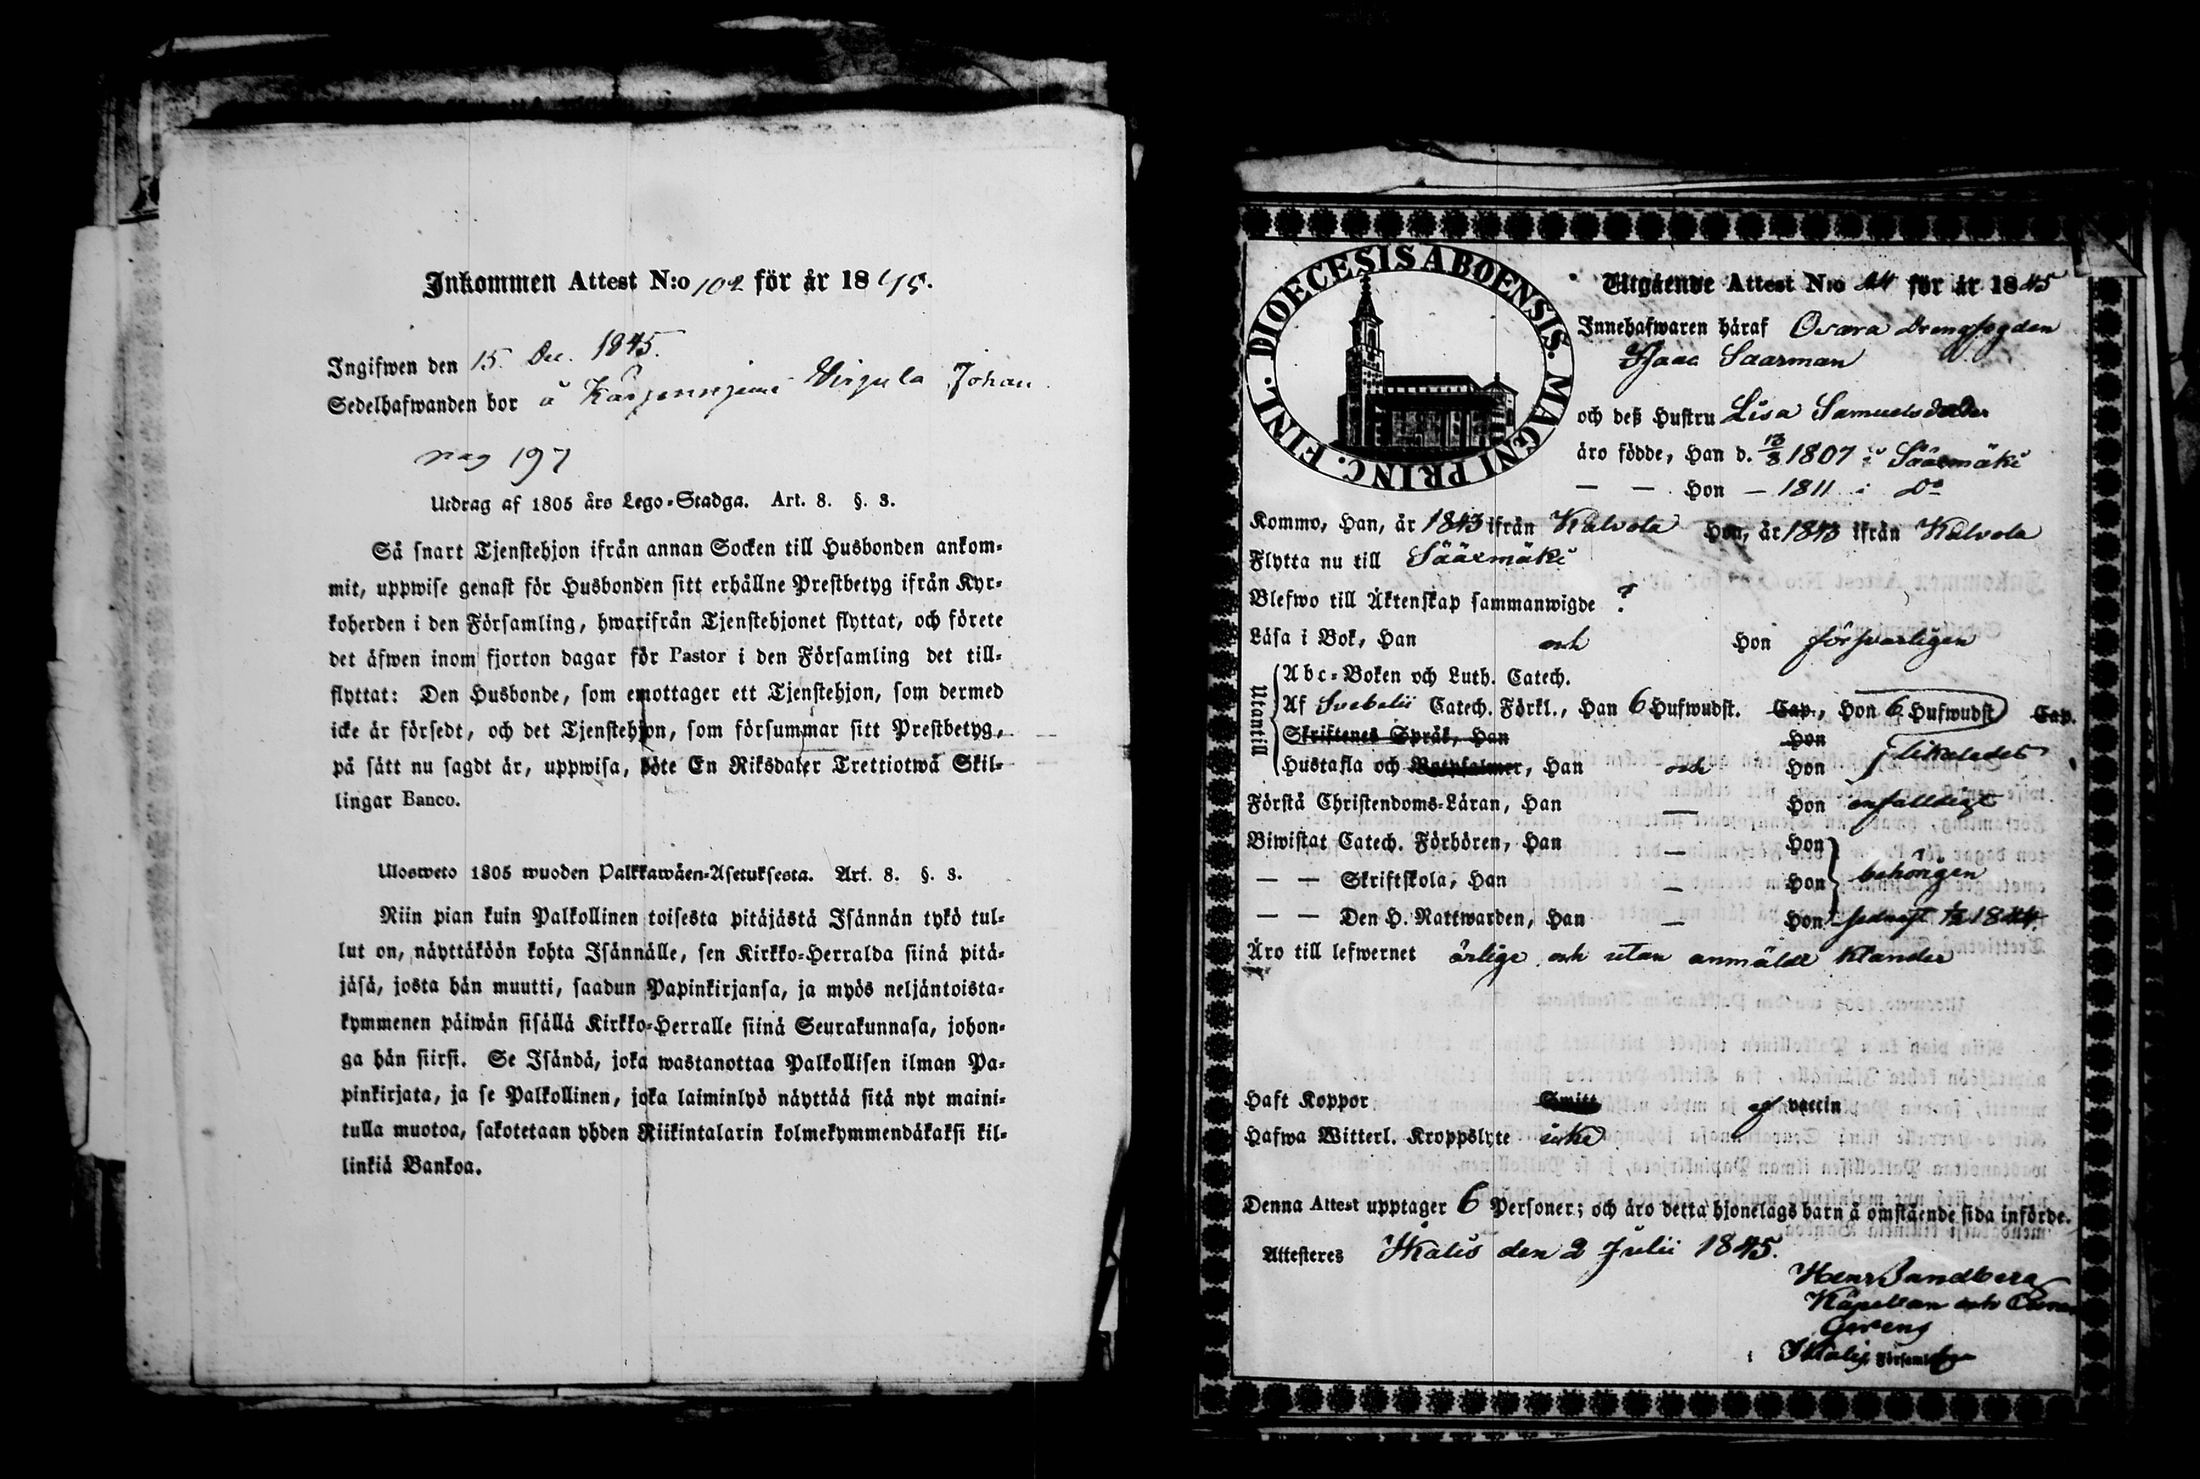 Inkommen Attest N:o 102 för år 1845.
Ingifwen den 15. Dec. 1845.
Sedelhafwanden bor å Virgula Johan
pag 197
Utdrag af 1805 års Lego-Stadga. Art. 8. §. 3.
Så snart Tjenstehjon ifrån annan Socken till Husbonden ankom-
mit, uppwise genast för Husbonden sitt erhållne Prestbetyg ifrån Kyr-
koherden i den Församling, hwarifrån Tjenstehjonet flyttat, och förete
det äfwen inom fjorton dagar för Pastor i den Församling det till-
flyttat: Den Husbonde, som emottager ett Tjenstehjon, som dermed
icke är försedt, och det Tjenstehjon, som försummar sitt Prestbetyg,
på sätt nu sagdt är, uppwisa, böte En Riksdaler Trettiotwå Skil-
lingar Banco.
Ulosweto 1805 wuoden Palkkawäen-Asetuksesta. Art. 8. §. 3.
Niin pian kuin Palkollinen toisesta pitäjästä Isännän tykö tul-
lut on, näyttäköön kohta Isännälle, sen Kirkko-Herralda siinä pitä-
jäsä, josta hän muutti, saadun Papinkirjansa, ja myös neljäntoista-
kymmenen päiwän sisällä Kirkko-Herralle siinä Seurakunnasa, johon-
ga hän siirsi. Se Isändä, joka wastanottaa Palkollisen ilman Pa-
pinkirjata, ja se Palkollinen, joka laiminlyö näyttää sitä nyt maini-
tulla muotoa, sakotetaan yhden Riikintalarin kolmekymmendäkaksi kil-
linkiä Bankoa.
FINL. DIOECESIS ABOENSIS. MAGNI PRINC.
Utgående Attest N:o 44 för år 1845
Innehafwaren häraf Drengfogden
Isaac Saarman
och deß Hustru Lisa Samuelsdotter
äro födde, Han d. 13/8 1807 i Säärmäki
— — Hon — 1811 i Do
Kommo, Han, år 1843 ifrån Kalvola Hon, år 1843 ifrån Kalvola
Flytta nu till Säärmäki
Blefwo till Äktenskap sammanwigde ?
Läsa i Bok, Han och Hon försvarligen
Utantill
Abc-Boken och Luth. Catech.
Af Svebelii Catech. Förkl., Han 6 Hufwudst. Cap., Hon 6 Hufwudst Cap.
Skriftenes Språk, Han Hon
Hustafla och Botpsalmer, Han och Hon likaledes
Förstå Christendoms-Läran, Han — Hon enfalldigt
Biwistat Catech. Förhören, Han — Hon
— — Skriftskola, Han — Hon behörigen
— — Den H. Nattwarden, Han — Hon sednast 1844.
Äro till lefwernet ärlige och utan anmäldt klander
Haft Koppor Smitt af vaccin
Hafwa Witterl. Kroppslyte icke
Denna Attest upptager 6 Personer; och äro detta hjonelags barn å omstående sida införde.
Attesteres Ikalis den 2 Julii 1845.
Henr Sandberg
Kapellan och
i Ikalis Församling